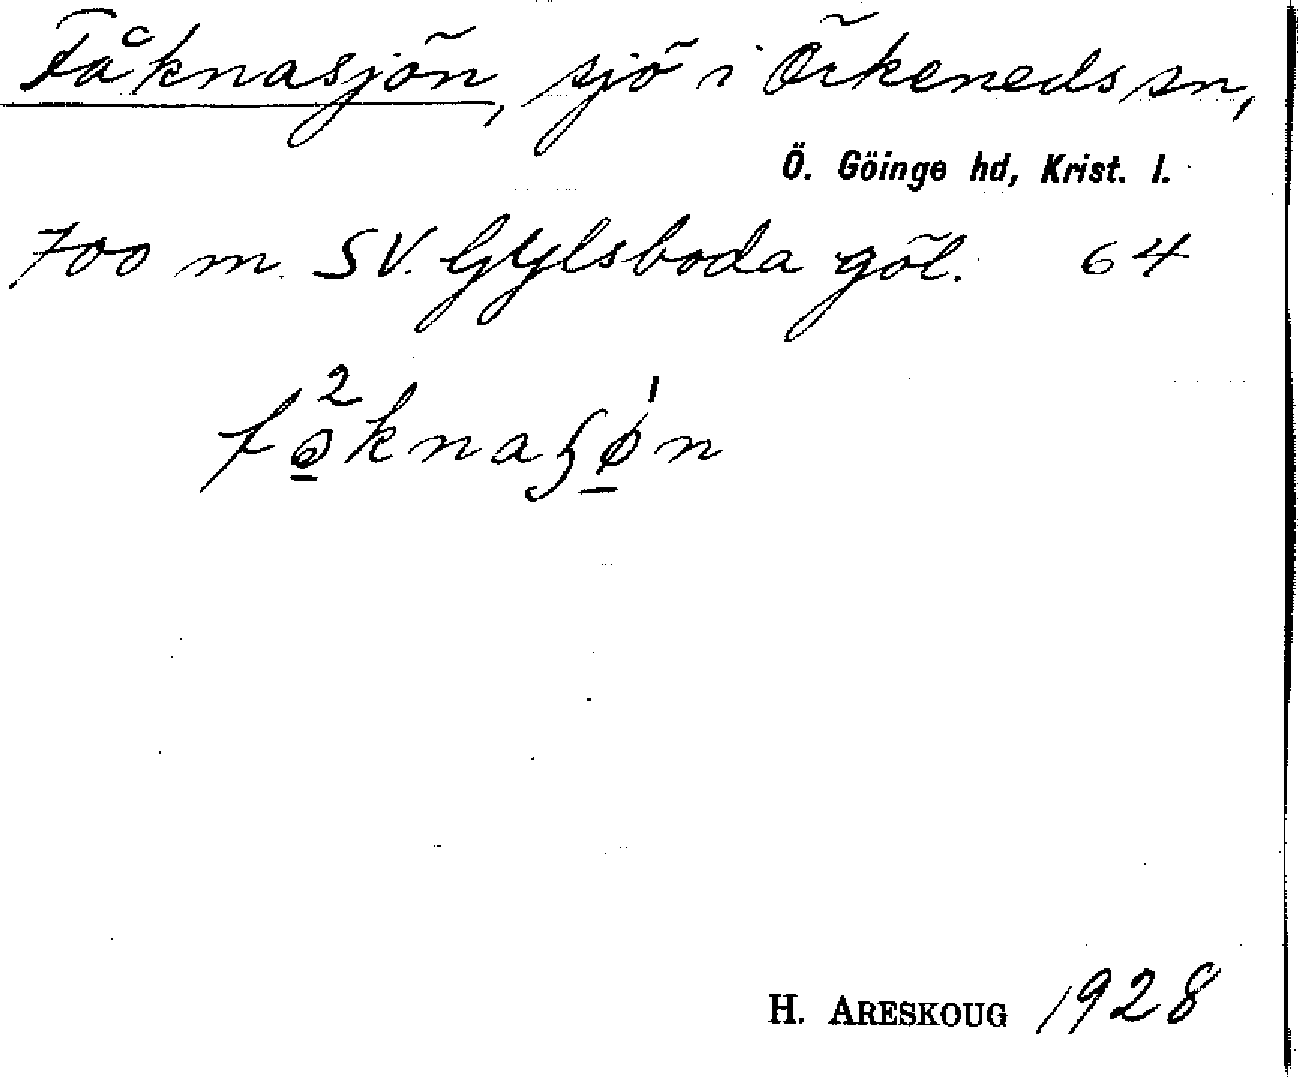 Fåknasjön, sjö i Örkeneds sn,
Ö. Göinge hd, Krist. l.
700 m. SV. Gylsboda göl. 64
H. ARESKOUG 1928